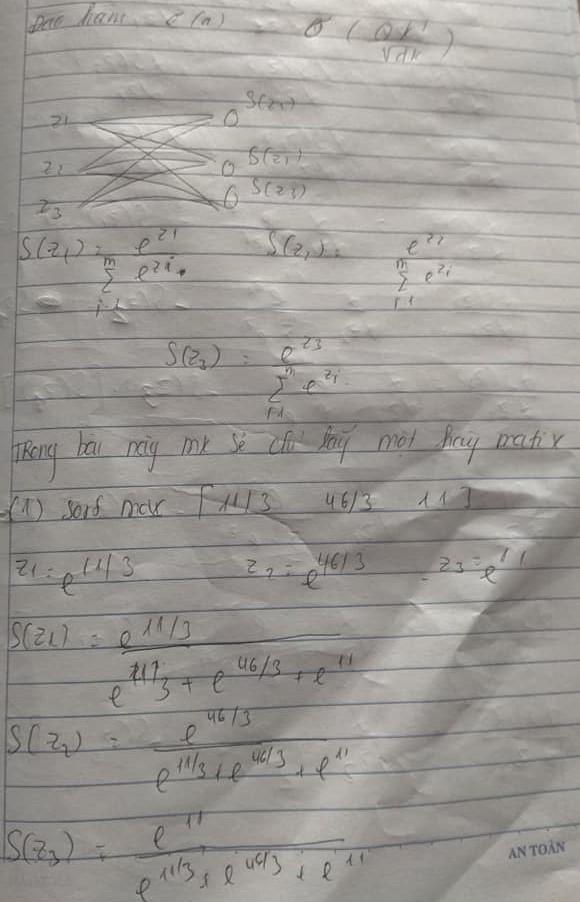 Đạo hàm C(n) = σ ( QK^T / √dk )
z1 S(z1)
z2 S(z1)
z3 S(z3)
S(z1) = e^z1 / ∑_{i=1}^{m} e^zi. S(z1) = e^z2 / ∑_{i=1}^{m} e^zi
S(z3) = e^z3 / ∑_{i=1}^{m} e^zi.
Trong bài này mk sẽ chỉ lấy một hàng matix
(1) sorf max [11/3 46/3 11]
z1 = e^11/3 z2 = e^46/3 z3 = e^11
S(z1) = e^11/3 / e^11/3 + e^46/3 + e^11
S(z2) = e^46/3 / e^11/3 + e^46/3 + e^11
S(z3) = e^11 / e^11/3 + e^46/3 + e^11
AN TOÀN